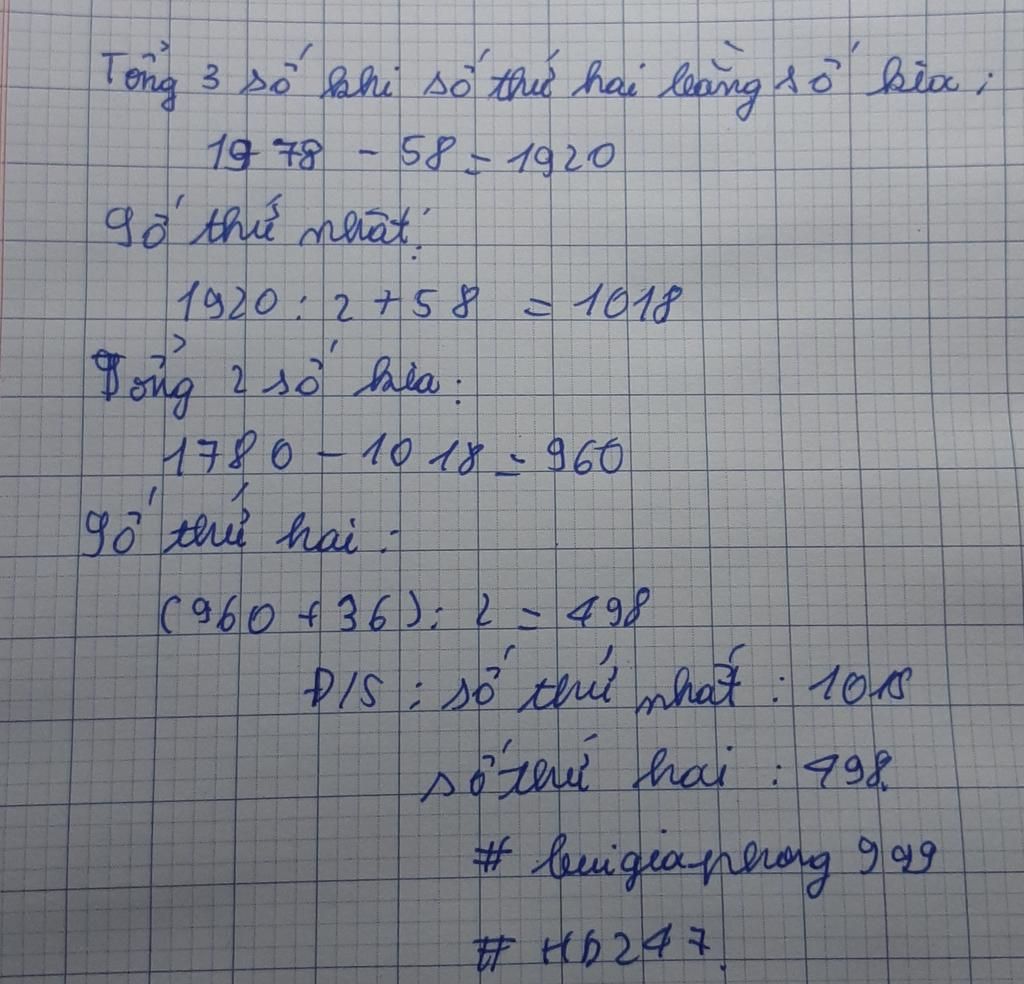 Tổng 3 số khi số thứ hai bằng số kia :
1978 - 58 = 1920
Số thứ nhất :
1920 : 2 + 58 = 1018
Tổng 2 số kia :
1780 - 1018 = 960
Số thứ hai :
(960 + 36) : 2 = 498
Đ/S : số thứ nhất : 1018
số thứ hai : 498
# buigiaphong 999
# HD247